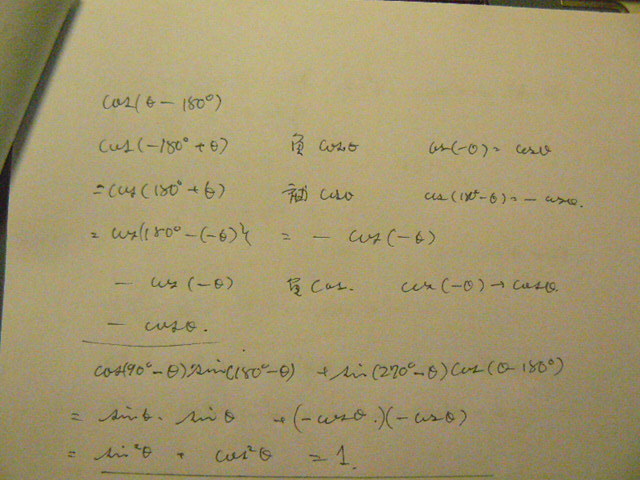 cos(θ − 180°)
cos(−180° + θ) 負 cosθ cos(−θ) = cosθ
= cos(180° + θ) 補 cosθ cos(180° − θ) = − cosθ.
= cos{180° − (−θ)} = − cos(−θ)
− cos(−θ) 負 cos. cos(−θ) → cosθ
− cosθ.
cos(90° − θ) sin(180° − θ) + sin(270° − θ) cos(θ − 180°)
= sinθ · sinθ + (− cosθ.)(− cosθ)
= sin²θ + cos²θ = 1.